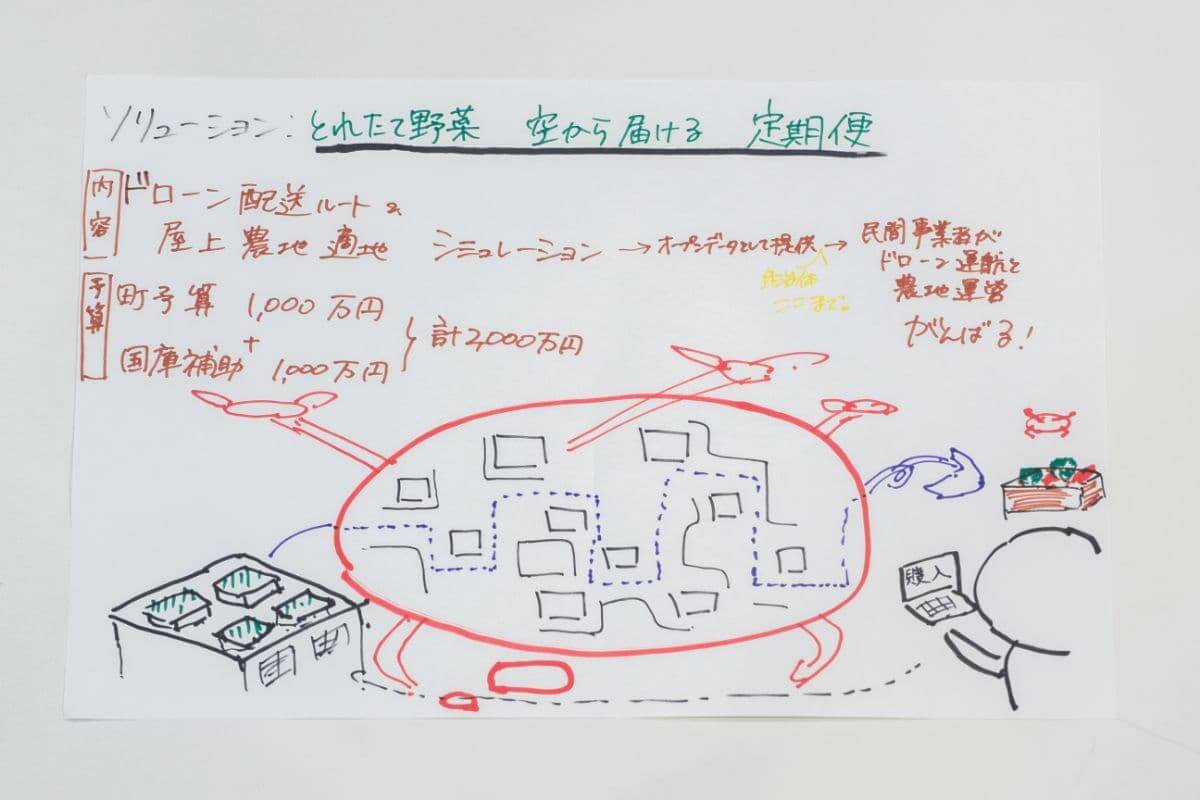 ソリューション: とれたて野菜 空から届ける 定期便
内容
ドローン配送ルート &
屋上農地適地 シミュレーション → オープンデータとして提供 → 民間事業者が
ドローン運航と
農地運営
がんばる!
自治体
ここまで。
予算
町予算 1,000万円
+
国庫補助 1,000万円
計2,000万円
購入